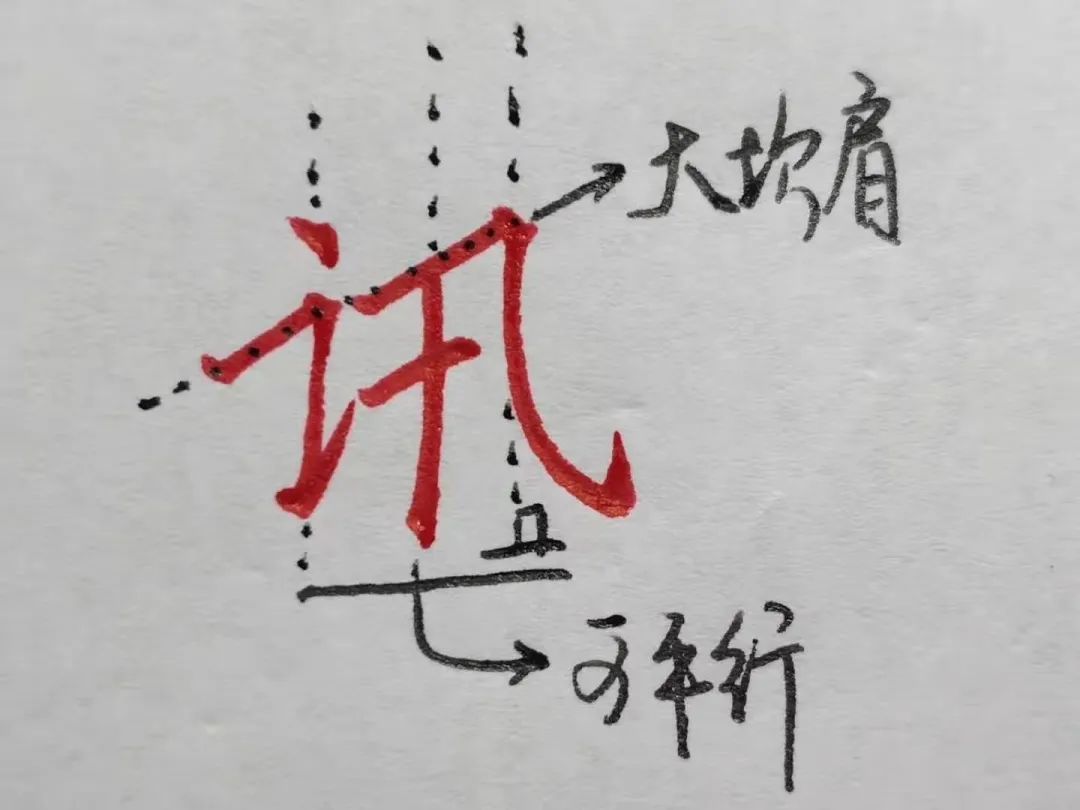 大坎肩
讯
可平行